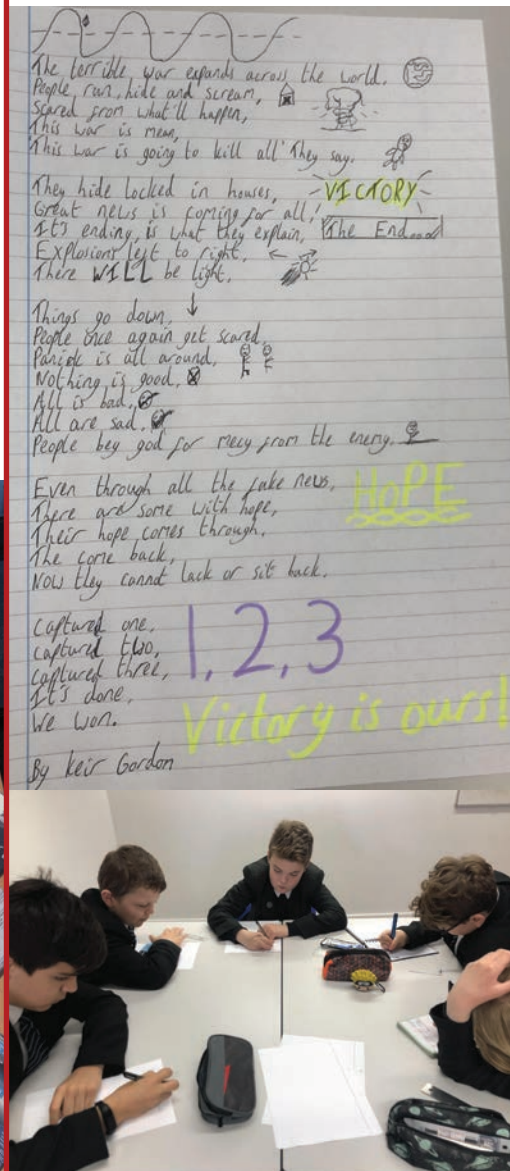 The terrible war expands across the world.
People, run, hide and scream,
Scared from what'll happen,
This war is mean,
'This war is going to kill all' They say.
They hide locked in houses,
VICTORY
Great news is coming for all,
It's ending, is what they explain,
The End....
Explosions left to right,
There WILL be light,
Things go down,
People once again get scared,
Panick is all around,
Nothing is good,
All is bad,
All are sad,
People beg god for mecy from the enemy.
Even through all the fake news,
HOPE
There are some with hope,
Their hope comes through,
The come back,
Now they cannot lack or sit back.
captured one,
captured two,
captured three,
1, 2, 3
It's done,
We won.
Victory is ours!
By Keir Gordon